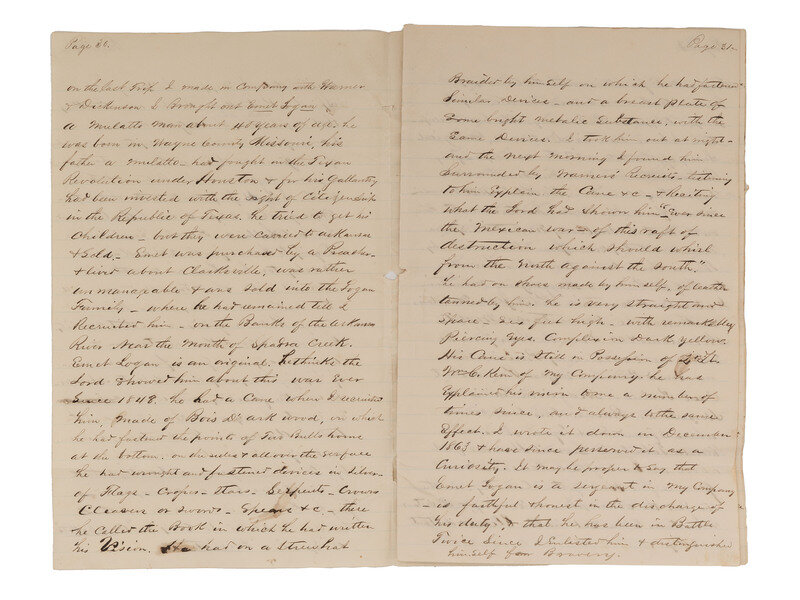 Page 30.
on the last Trip I made in Company with Warner
& Dickenson I Brought out Emet Logan
a Mulatto man about 40 years of age. he
was born in Wayne County Missouri, his
father a Mulatto had fought in the Texan
Revolution under Houston & for his Gallantry
had been invested with the right of Citizenship
in the Republic of Texas. he tried to get his
Children – but they were carried to Arkansas
& Sold. – Emet was purchased by a Preacher
& lived about Clarksville, was rather
unmanagable & was Sold into the Logan
Family – where he had remained till I
Recruited him – on the Banks of the Arkansas
River Near the Mouth of Spadra Creek.
Emet Logan is an original. he thinks the
Lord Showed him about this war Ever
Since 1848. he had a Cane when I recruited
him, Made of Bois D'ark wood, on which
he had fastened the points of Two Bulls horns
at the bottom. on the sides & all over the Surface
he had wrought and fastened devices in Silver
of Flags – Crosses – Stars – Serpents – Crowns
or Swords – Spears &c – there
he Called the Book in which he had written
his Vision. He had on a Straw hat
Page 31.
Braided by himself on which he had fastened
Similar devices – and a breast plate of
Some bright metalic Substance, with the
Same Devices. I took him out at night –
and the next morning I found him
Surrounded by Warners Recruits listening
to him Explain the Cane &c – & Reciting
What the Lord had Shown him "Ever Since
the Mexican war – of this raft of
destruction which should whirl
from the North against the South."
he had on Shoes made by himself, of leather
tanned by him. he is very straight and
spare – six feet high – with remarkably
Piercing Eyes. Complexion Dark yellow.
His Cane is Still in Possession of
of My Company. he has
Explained his vision to me a number of
times since, and always to the same
Effect. I wrote it down in December
1863 & have since perserved it as a
Curiosity. It may be proper to Say that
Emet Logan is a sergeant in My Company
– is faithful & honest in the discharge of
his duty, & that he has been in Battle
Twice Since I Enlisted him & distinguished
himself for Bravery.